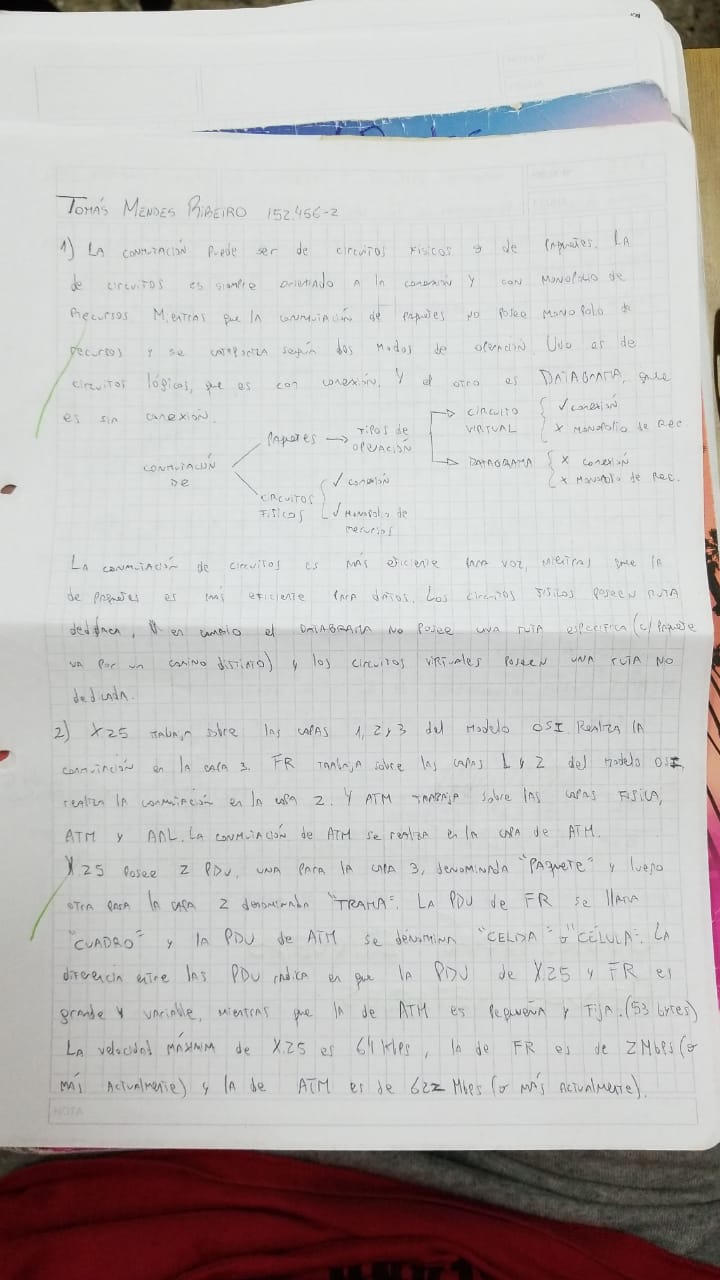 TOMÁS MENDES RIBEIRO 152.456-2
1) LA CONMUTACIÓN Puede ser de circuitos Físicos o de Paquetes. LA
de circuitos es siempre orientado A la conexión y con MONOPOLIO de
Recursos Mientras que la conmutación de Paquetes no Posee MONOPOLO de
recursos y se categoriza según dos Modos de operación. Uno es de
circuitos lógicos, que es con conexión. Y el otro es DATAGRAMA, que
es sin conexión.
CONMUTACIÓN
DE
PAPETES → TIPOS DE
OPERACIÓN
→ CIRCUITO
VIRTUAL
✓ conexión
x MONOPOLIO de Rec.
→ DATAGRAMA
x conexión
x MONOPOLIO de Rec.
CIRCUITOS
FÍSICOS
✓ conexión
✓ Monopolio de
recursos
LA CONMUTACIÓN de circuitos es MÁS eficiente PARA VOZ, mientras que la
de PAQUETES es más eficiente PARA datos. Los circuitos físicos POSEEN RUTA
dedicada, en cambio el DATAGRAMA NO Posee UNA RUTA específica (c/ PAQUETE
va Por un camino distinto) y los circuitos VIRTUALES Poseen UNA RUTA NO
dedicada.
2) X25 trabaja sobre las capas 1, 2 y 3 del Modelo OSI. Realiza la
conmutación en la capa 3. FR TRABAJA sobre las capas 1 y 2 del modelo OSI,
realiza la conmutación en la capa 2. Y ATM TRABAJA sobre las capas FISICA,
ATM y AAL. La conmutación de ATM se realiza en la capa de ATM.
X25 Posee 2 PDU, UNA PARA la capa 3, denominada "PAQUETE" y luego
otra para la capa 2 denominada "TRAMA". LA PDU de FR se llama
"CUADRO" y la PDU de ATM se denomina "CELDA" o "CÉLULA". LA
diferencia entre las PDU radica en que la PDU de X.25 y FR es
grande y variable, mientras que la de ATM es Pequeña y Fija. (53 bytes)
La velocidad MÁXIMA de X.25 es 64 kbps, la de FR es de 2 Mbps (o
más Actualmente) y la de ATM es de 622 Mbps (o MÁS Actualmente).
NOTA